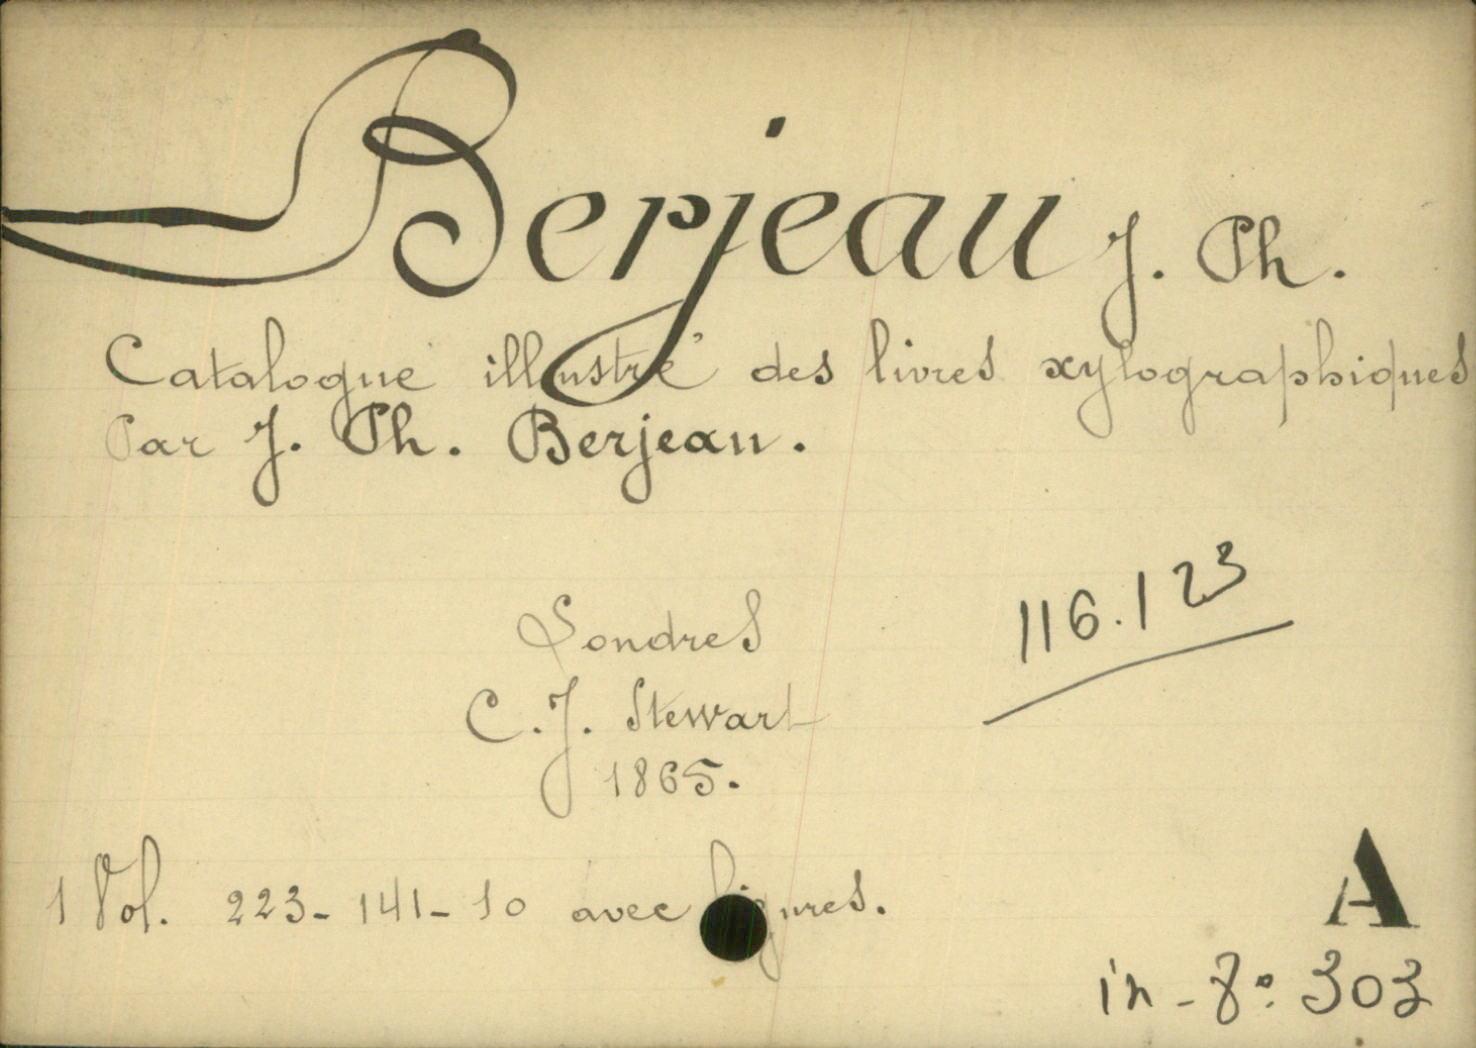 Berjeau J. Ph.
Catalogue illustré des livres xylographiques
Par J. Ph. Berjeau.
116.123
Londres
C. J. Stewart
1865.
1 Vol. 223-141-10 avec figures.
A
in-8º 303